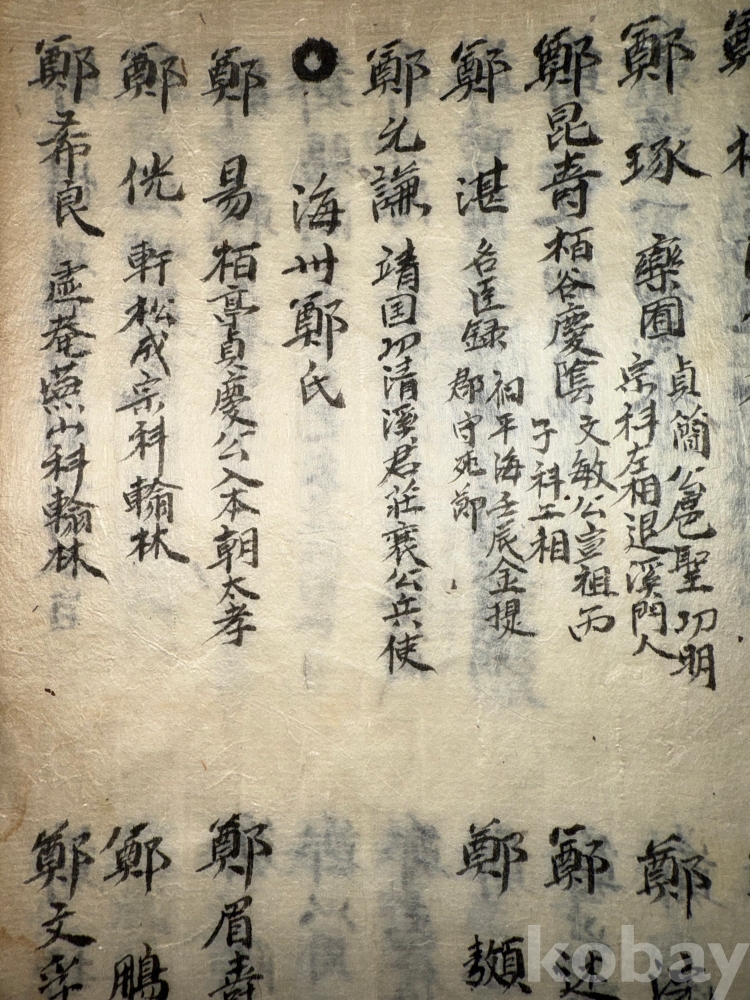 鄭
鄭琢 藥圃 貞簡公扈聖功明
宗科左相退溪門人
鄭崑壽 栢谷慶陰 文敏公宣祖丙
子科工相
鄭湛 名臣錄 祖平海壬辰金提
郡守死節
鄭允謙 靖国功清溪君莊襄公兵使
海州鄭氏
鄭易 栢亭貞度公入本朝太孝
鄭侊 軒松成宗科翰林
鄭希良 虛菴燕山科翰林
鄭
鄭
鄭
鄭眉壽
鄭鵬
鄭文孚
kobay